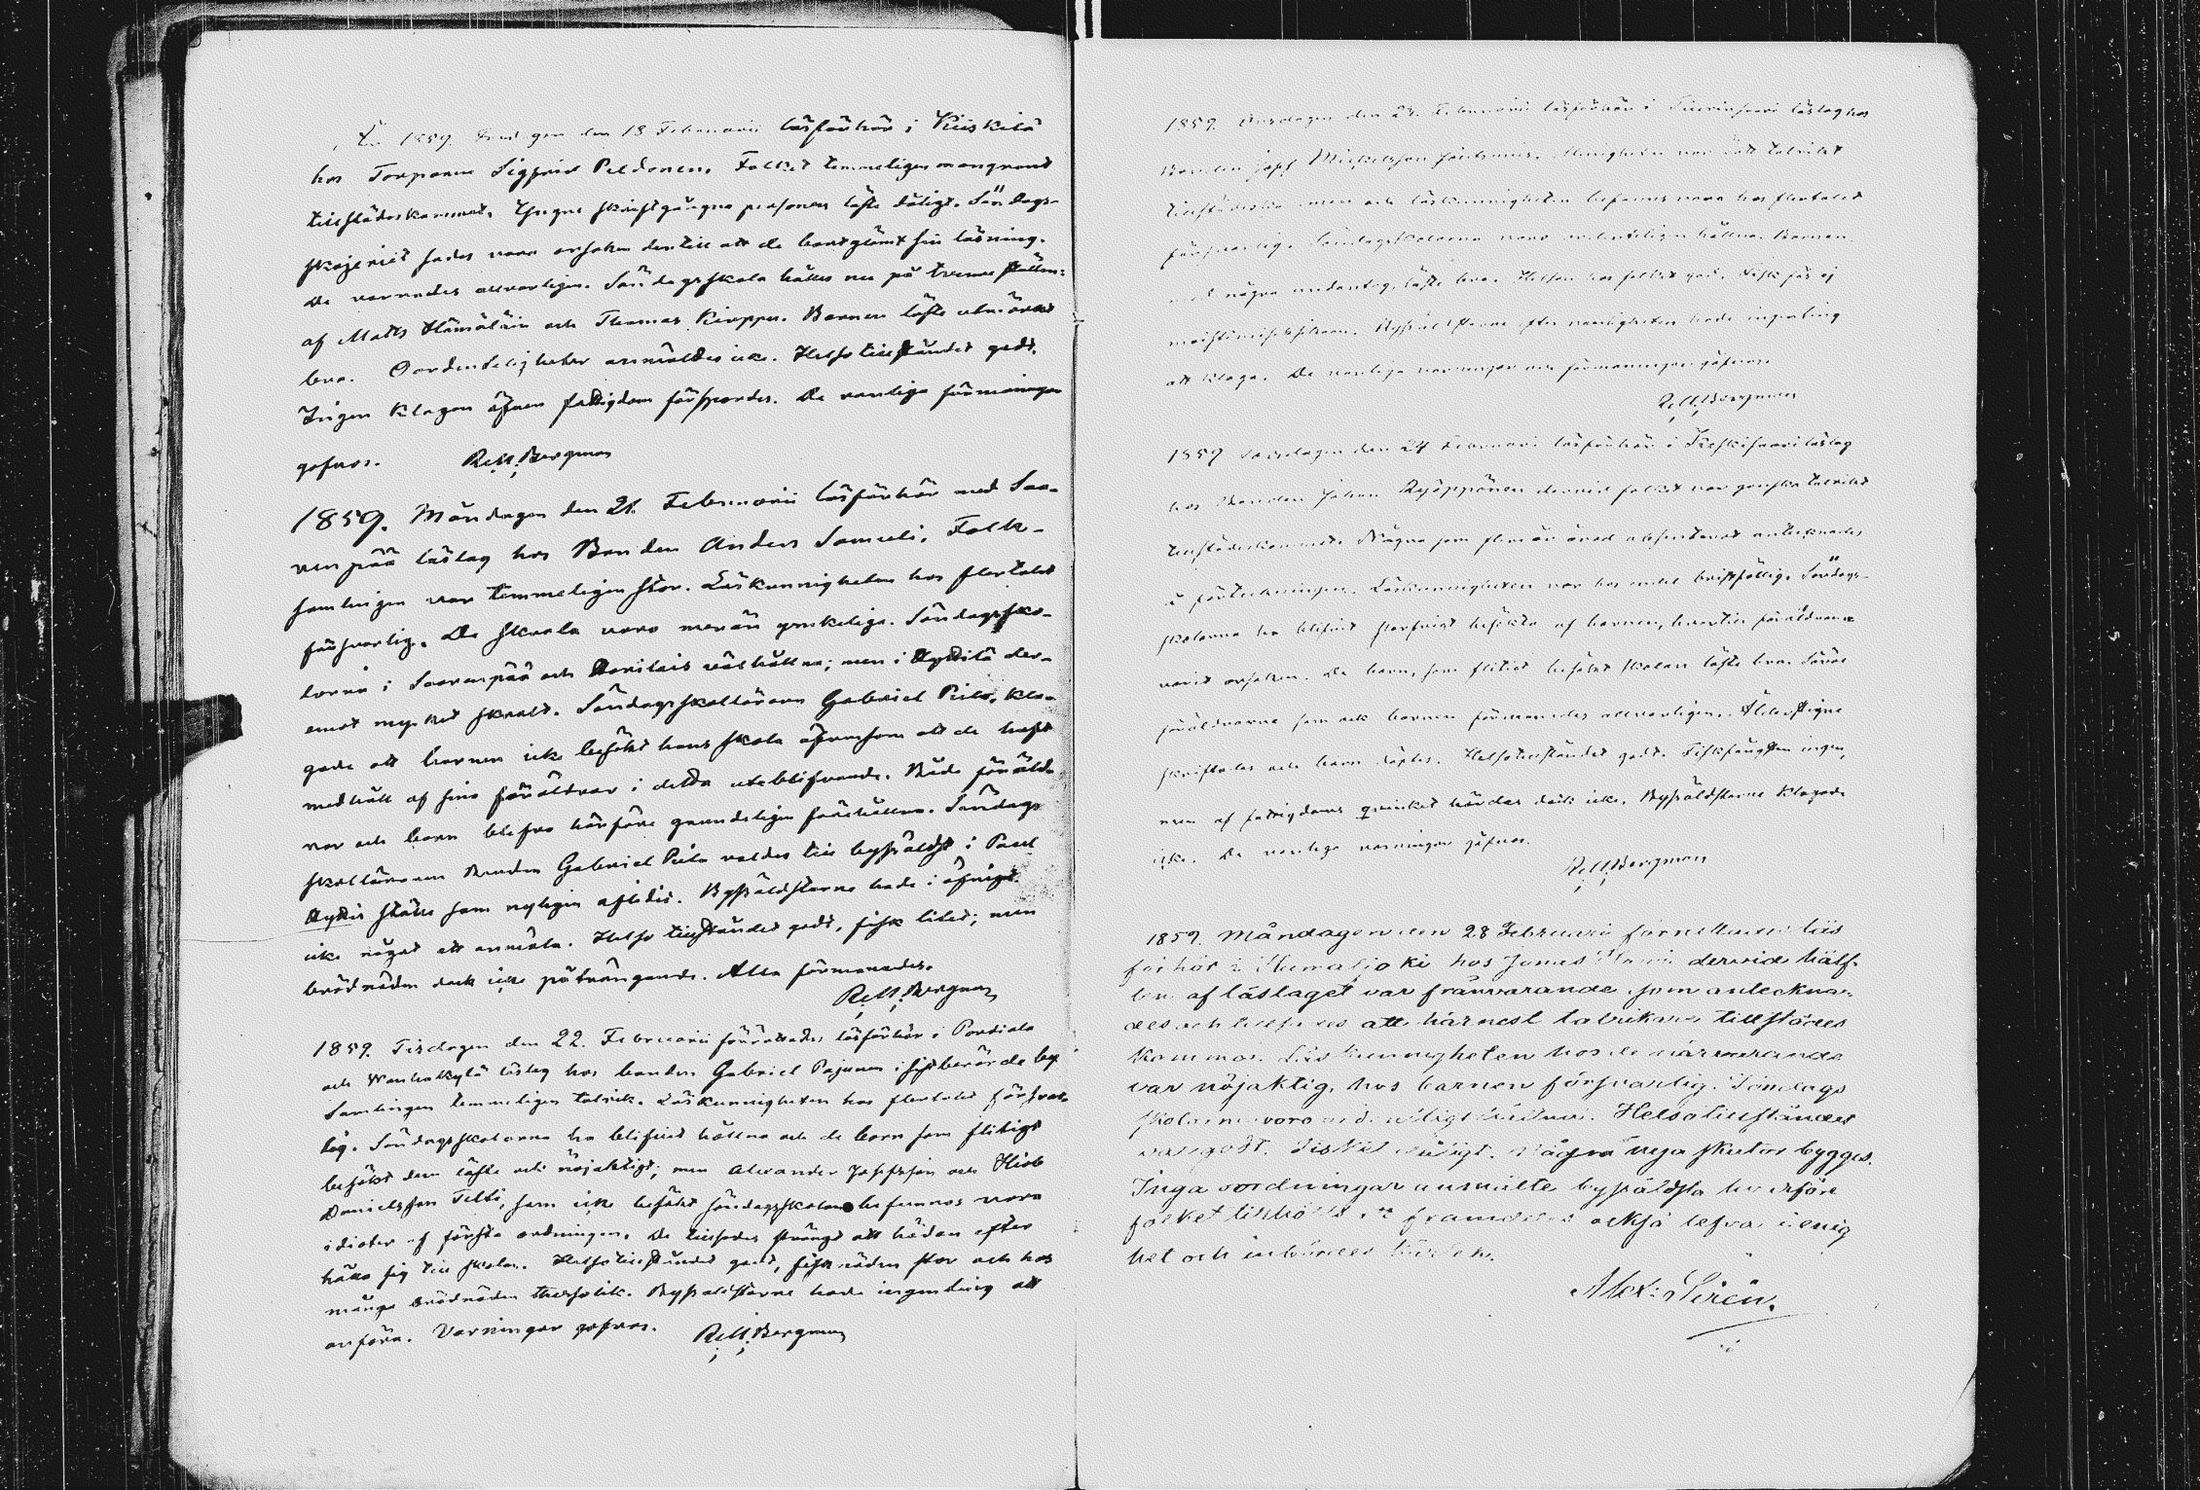 År 1859. Fredagen den 18 Februarii läsförhör i Kiiskilä
hos Torparen Sigfrid Peldonen. Folket temmeligen mangrant
tillstädeskommet. Yngre skriftgångna personer läste dåligt. Söndags-
skojeriet sades vara orsaken dertill att de bortglömt sin läsning.
De varnades allvarligen. Söndagsskola hålles nu på tvenne ställen:
af Matts Hämäläin och Thomas Kirppu. Barnen läste utmärkt
bra. Oordentligheter anmäldes icke. Helsotillståndet godt.
Ingen klagan öfver fattigdom förspordes. De vanliga förmaningar
gofvos. R. M. Bergman
1859. Måndagen den 21. Februarii läsförhör med Saa-
renpää läslag hos Bonden Anders Samuli. Folk-
samlingen var temmeligen stor. Läskunnigheten hos flertalet
försvarlig. De skrala voro merän ynkeliga. Söndagssko-
lorna i Saarenpää och väl hållna; men i Kyttilä der-
emot mycket skralt. Söndagsskolläraren Gabriel Piilo, kla-
gade att barnen icke besökt hans skola äfvensom att de haft
medhåll af sina föräldrar i detta uteblifvande. Både föräld-
rar och barn blefvo härföre grundeligen förehållna. Söndags
skolläraren Bonden Gabriel Piilo valdes till byfåldste i Paul
Kyttis ställe som nyligen aflidit. Byfåldsterne hade i öfrigt
icke något att anmäla. Helsotillståndet godt, fisk litet; men
brödnöden dock icke påträngande. Alla förmanades.
R. M. Bergman
1859. Tisdagen den 22. Februarii förrättades läsförhör i Portiala
och Wanhakylä läslag hos bonden Gabriel Pajunen i sistberörde by
Samlingen temmeligen talrik. Läskunnigheten hos flertalet försvar-
lig. Söndagsskolorna ha blifvit hållna och de barn som flitigt
besökt dem läste ock nöjaktigt; men Alexander Josefsson och Hiob
Danielsson Tetti, som icke besökt söndagsskolan befunnos vara
idioter af första ordningen. De tillsades strängt att hädan efter
hålla sig till skolan. Helsotillståndet godt, fisknöden stor och hos
många brödnöden tillika. Byfåldsterne hade ingenting att
anföra. Varningar gofvos. R. M. Bergman
1859. Onsdagen den 23. Februarii läsförhör i läslag hos
Bonden Josef Michelsson Menigheten var rätt talrikt
tillstädeskommen och läskunnigheten befanns vara hos flertalet
försvarlig. Söndagsskolorna voro ordentligen hållna. Barnen
med några undantag läste bra. Helsan hos folket god. Fisk fås ej
Byfåldsterne efter vanligheten hade ingenting
att klaga. De vanliga varningar och förmaningar gåfvos.
R. M. Bergman
1859 Torsdagen den 24 Februari läsförhör i Kiiskisaari läslag
hos Bonden Johan dervid folket var ganska talrikt
tillstädeskommet. Några som flera år årad absenterat antecknades
i förteckningen. Läskunnigheten var hos endel bristfällig. Söndags-
skolorna ha blifvit slarfvigt besökta af barnen, hvartill föräldrarne
varit orsaken. De barn, som flitigt besökt skolan läste bra. Såväl
föräldrarne som ock barnen förmanades allvarligen. Ålderstigne
skriftades och barn döptes. Helsotillståndet godt. Fiskfångsten ingen,
men af fattigdoms qvinket hördes dock icke. Byfåldsterne klagade
icke. De vanliga varningar gåfvos.
R. M. Bergman
1859. Måndagen den 28 Februarii förrättades läs
förhör i Humaljoki hos Jonas dervid hälf-
ten af läslaget var frånvarande som antekna-
des och tillsades att härnest talrikare tillstädes
komma. Läskunnigheten hos de närvarande
var nöjaktig, hos barnen försvarlig. Söndags
skolorne voro ordentligt hållna. Helsotillståndet
var godt. Fisket dåligt. Några nya skutor bygges.
Inga oordningar anmälte byfåldsta hvarföre
folket tillhölls att framdeles också lefva i enig
het och inbördes kärlek.
Alex: Sirén.